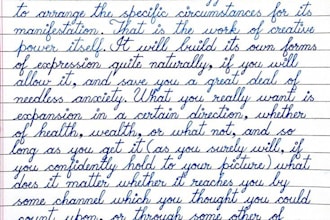 to arrange the specific circumstances for its
manifestation. That is the work of creative
power itself. It will build its own forms
of expression quite naturally, if you will
allow it, and save you a great deal of
needless anxiety. What you really want is
expansion in a certain direction, whether
of health, wealth, or what not, and so
long as you get it (as you surely will, if
you confidently hold to your picture) what
does it matter whether it reaches you by
some channel which you thought you could
count upon, or through some other of